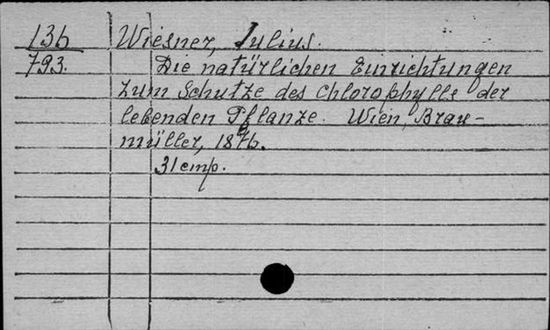 136 Wiesner, Julius.
793. Die natürlichen Einrichtungen
zum Schutze des Chlorophylls der
lebenden Pflanze. Wien, Brau-
müller, 1876.
31 cmp.